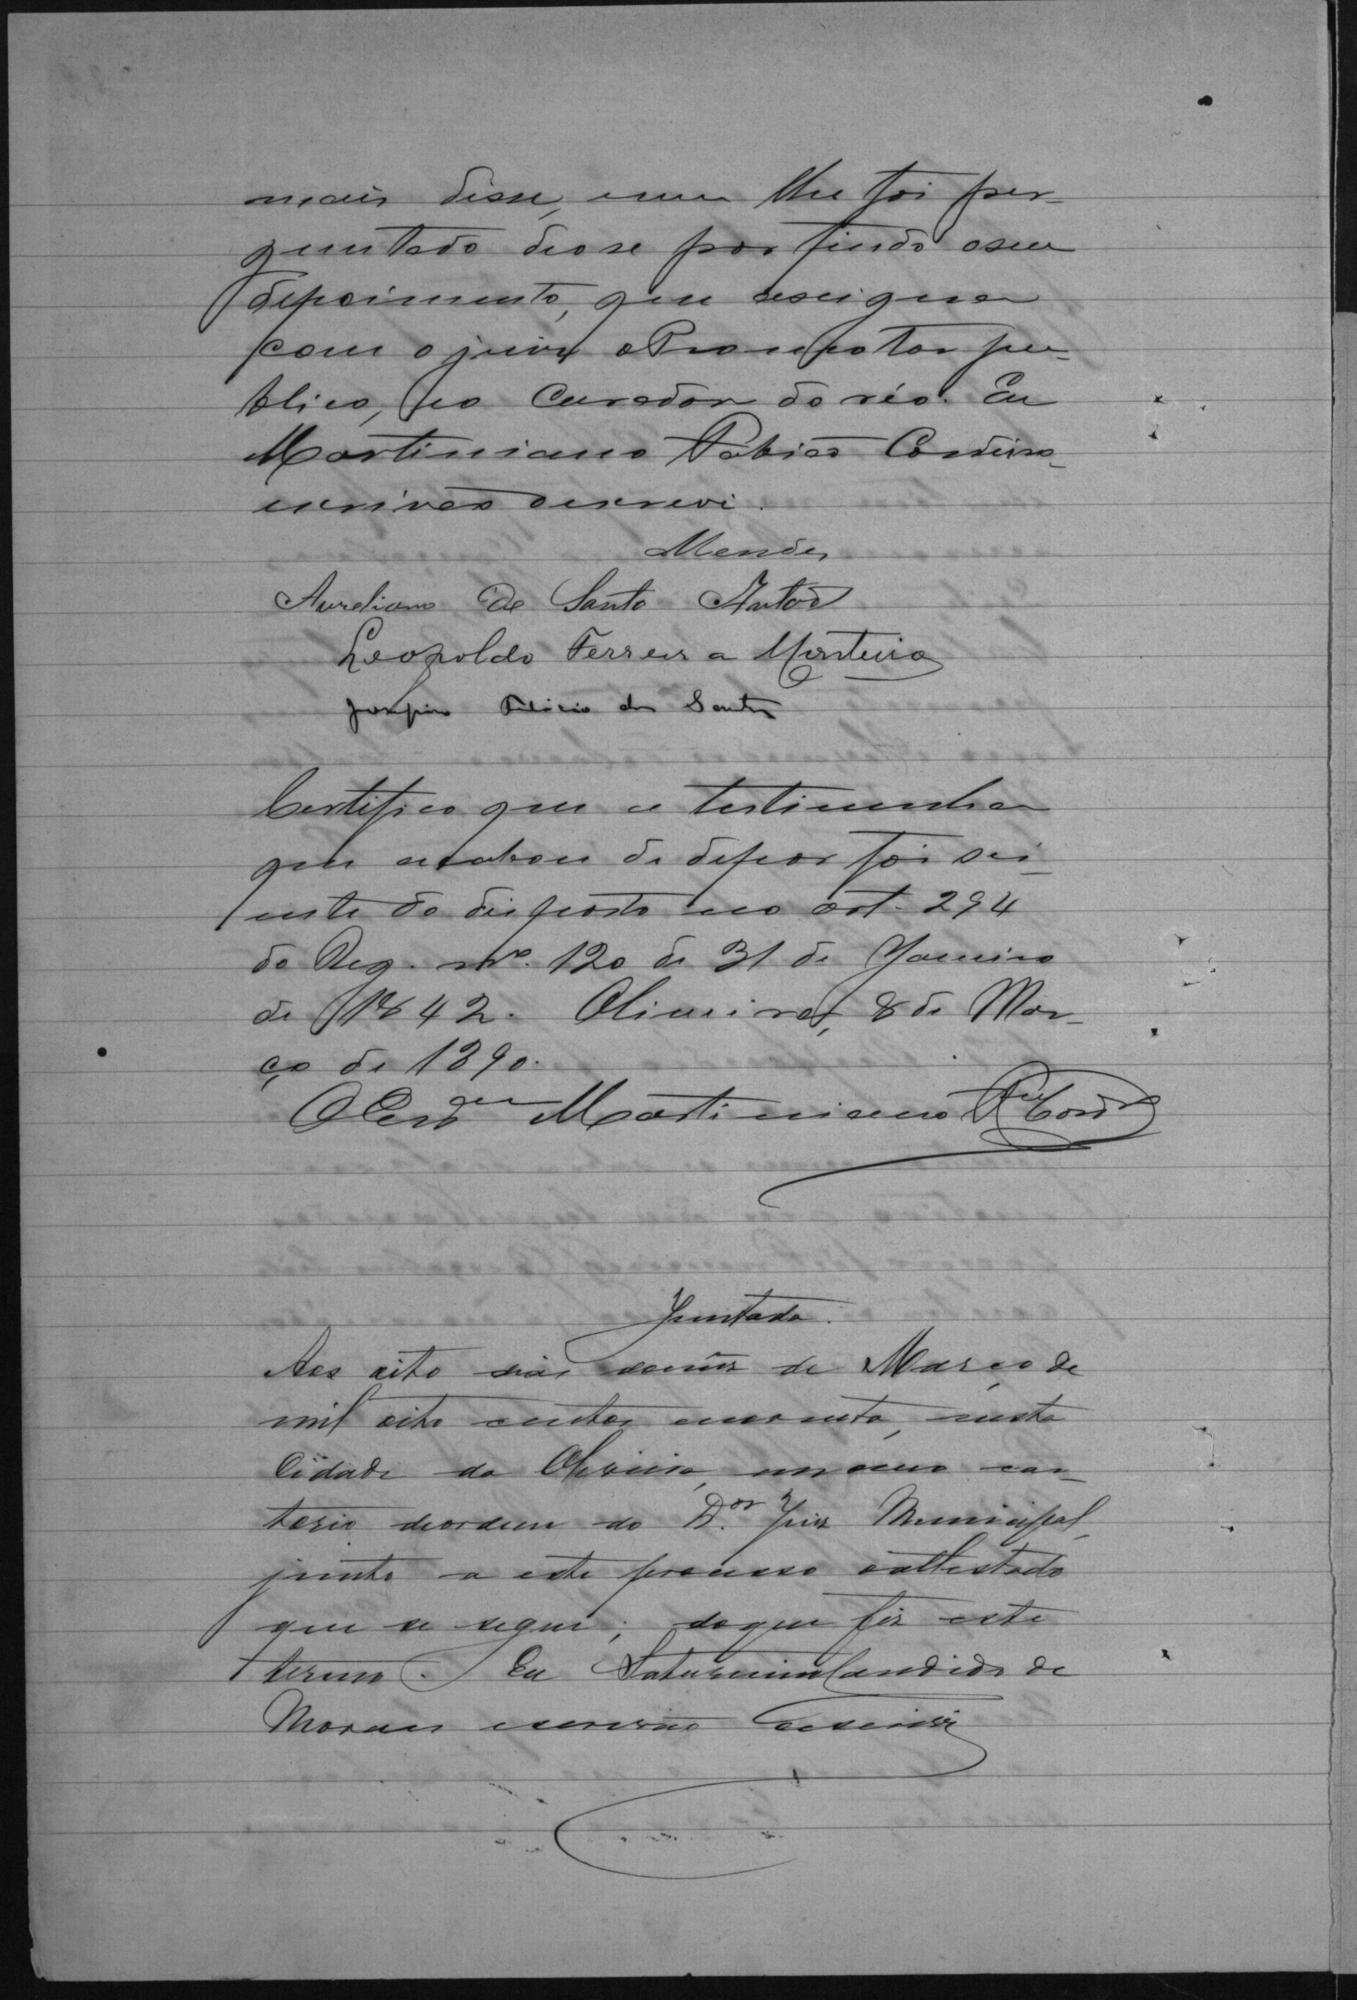 mais disse, nem lhe foi per-
guntado deose por findo oseu
depoimento, que assigna
com o juiz o Promotor pu-
blico, eo Curador do réo. Eu
Martiniano Cordeiro
escrivão oescrevi.
Mendes
Aureliano de Santo Antão
Leopoldo Ferreira Monteiro
dos Santos
Certifico que a testimunha
que acabou de depor foi sci-
ente do disposto no art. 294
do Reg. nº. 120 de 31 de Janeiro
de 1842. Oliveira, 8 de Mar-
ço de 1890.
O Martiniano
Juntada.
Aos oito dias domez de Março de
mil oito centos enoventa, nesta
Cidade da Oliveira, em meo car-
torio deordem do D.or Juiz Municipal,
junto a este processo oattestado
que se segue; doque fiz este
termo. Eu Saturnino Candido de
Moraes escrivão escrivi